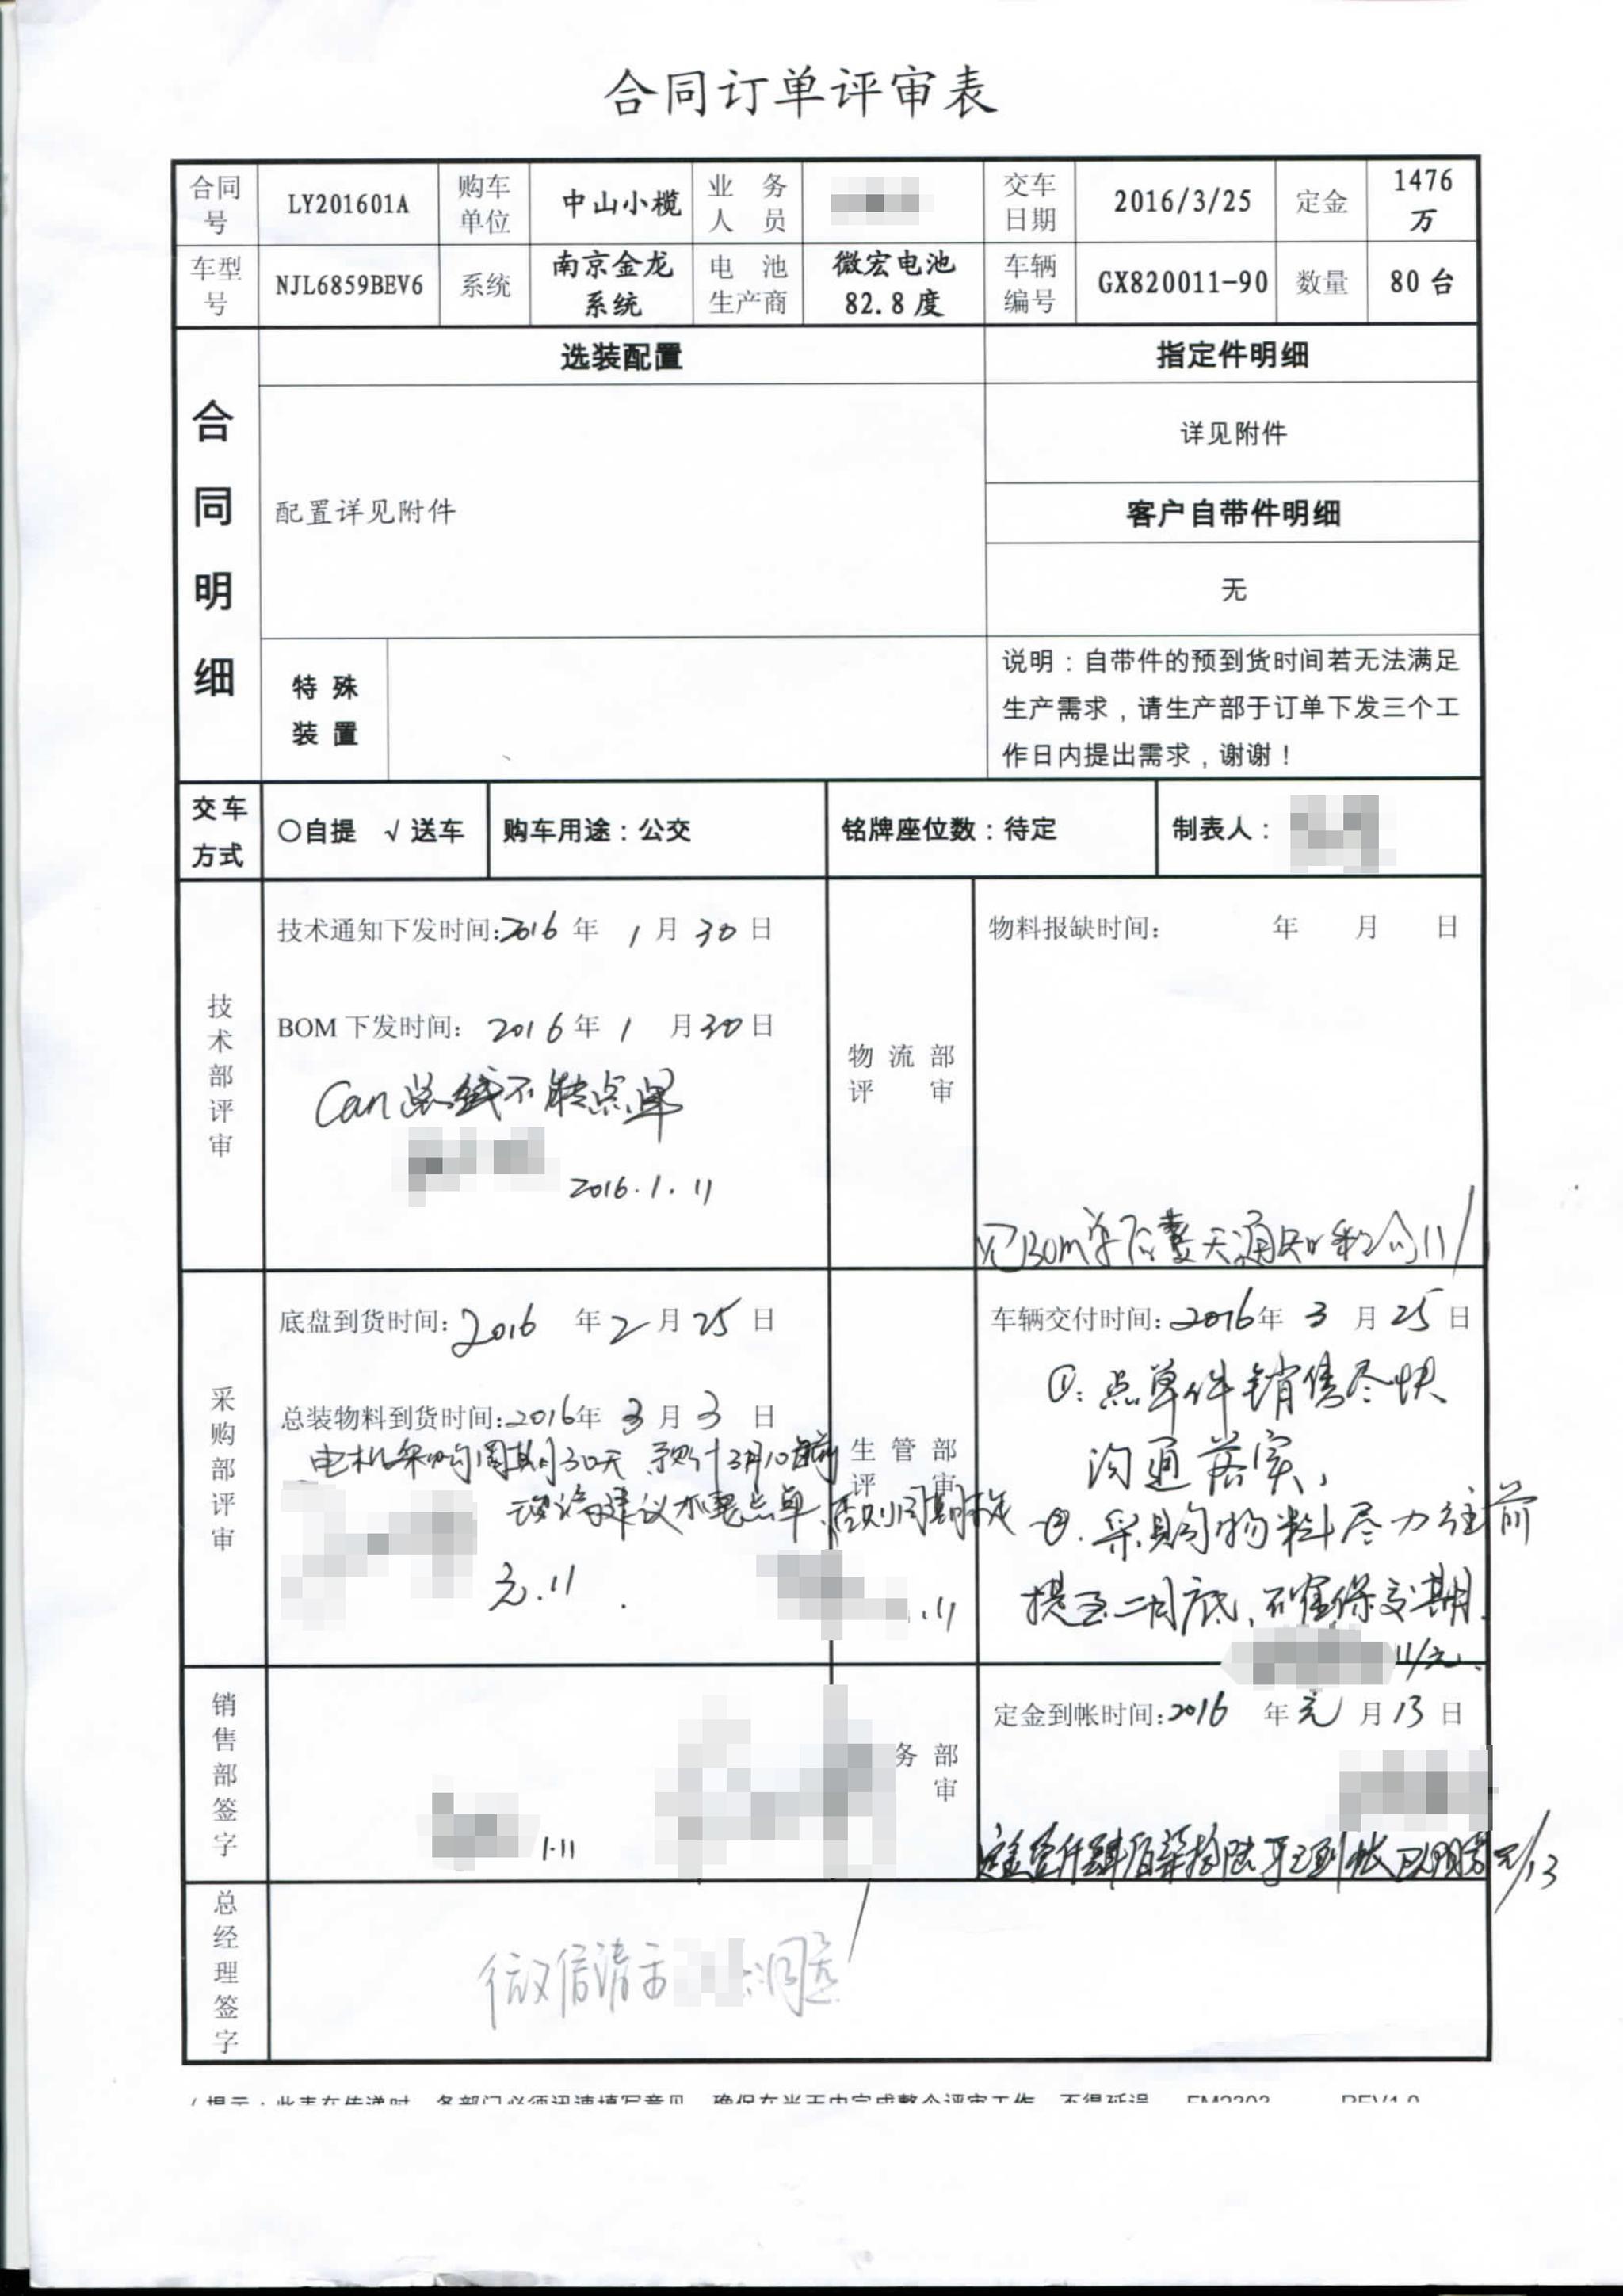 合同订单评审表
合同号 LY201601A 购车单位 中山小榄 业务人员 交车日期 2016/3/25 定金 1476万
车型号 NJL6859BEV6 系统 南京金龙系统 电池生产商 微宏电池82.8度 车辆编号 GX820011-90 数量 80台
合同明细
选装配置
指定件明细
配置详见附件
详见附件
客户自带件明细
无
特殊装置
说明：自带件的预到货时间若无法满足
生产需求，请生产部于订单下发三个工
作日内提出需求，谢谢！
交车方式 〇自提 √送车 购车用途：公交 铭牌座位数：待定 制表人：
技术部评审
技术通知下发时间:2016年1月30日
BOM下发时间：2016年1月30日
Can总线不能点单
2016.1.11
物流部评审
物料报缺时间： 年 月 日
见BOM单后
采购部评审
底盘到货时间:2016年2月25日
总装物料到货时间:2016年3月3日
电机采购周期30天 预计3月10日前
建议不要点单,否则周期
元.11
.11
生管部评审
车辆交付时间:2016年3月25日
①:点单件销售尽快
沟通落实,
②.采购物料尽力往前
提至二月底,不确保交期.
11/元.
销售部签字
1.11
务部审
定金到帐时间:2016年元月13日
元/13
总经理签字
微信请示 同意
（提示：此表在传递时，各部门必须迅速填写意见，确保在当天内完成整个评审工作，不得延误 FM2303 REV1.0